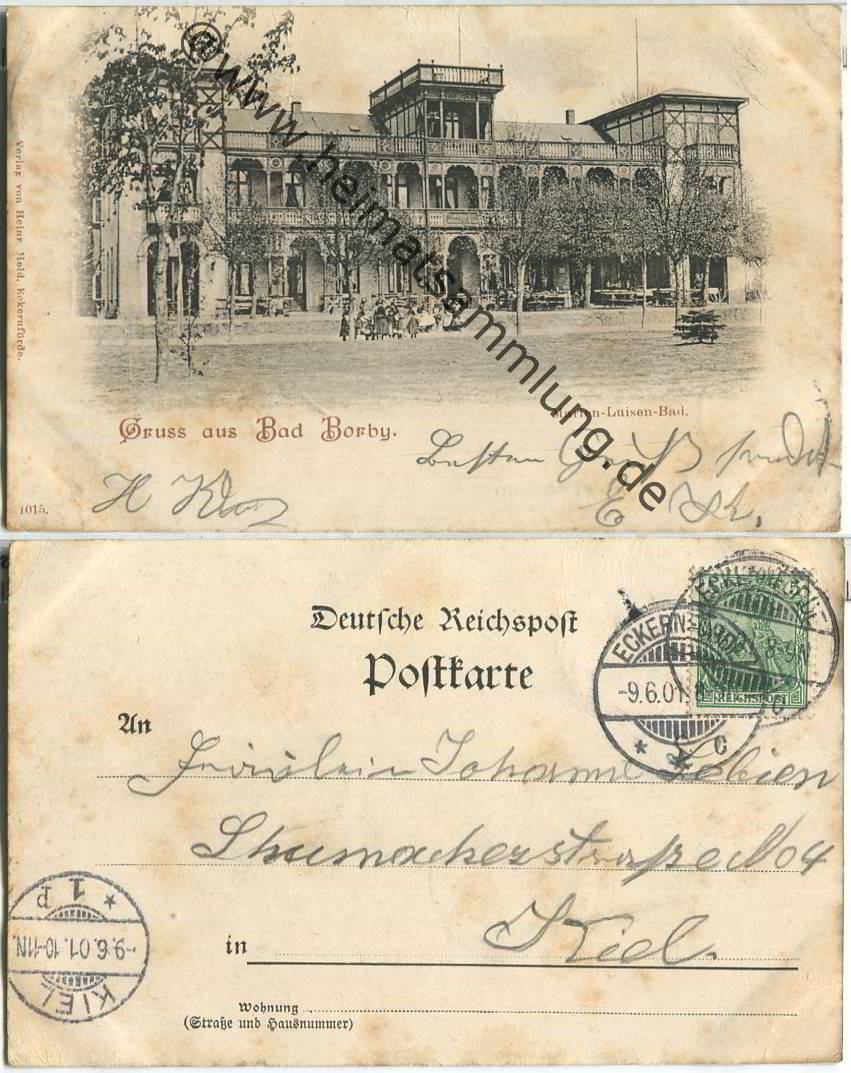 ©www.heimatsammlung.de
Verlag von Heinr Mold, Eckernförde.
Marien-Luisen-Bad.
Gruss aus Bad Borby.
Besten Gruß sendet
1015.
H
E
Deutsche Reichspost
Postkarte
ECKERNFÖRDE
-9.6.01. 8
* * C
ECKERNFÖRDE
8-9N
C
REICHSPOST
An
Fräulein Johanne
Schumacherstraße No 4
in Kiel.
KIEL
-9.6.01.10-11N.
* 1 p
Wohnung
(Straße und Hausnummer)